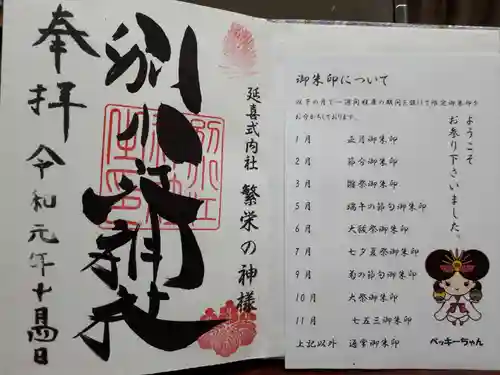 奉拝
別小江神社
延喜式内社 繁栄の神様
令和元年十月四日
御朱印について
以下の月で一週間程度の期間を設けて限定御朱印を
お分かちしております。
1月 正月御朱印
2月 節分御朱印
3月 雛祭御朱印
5月 端午の節句御朱印
6月 大祓祭御朱印
7月 七夕夏祭御朱印
9月 菊の節句御朱印
10月 大祭御朱印
11月 七五三御朱印
上記以外 通常御朱印
ようこそ
お参り下さいました。
べッキーちゃん